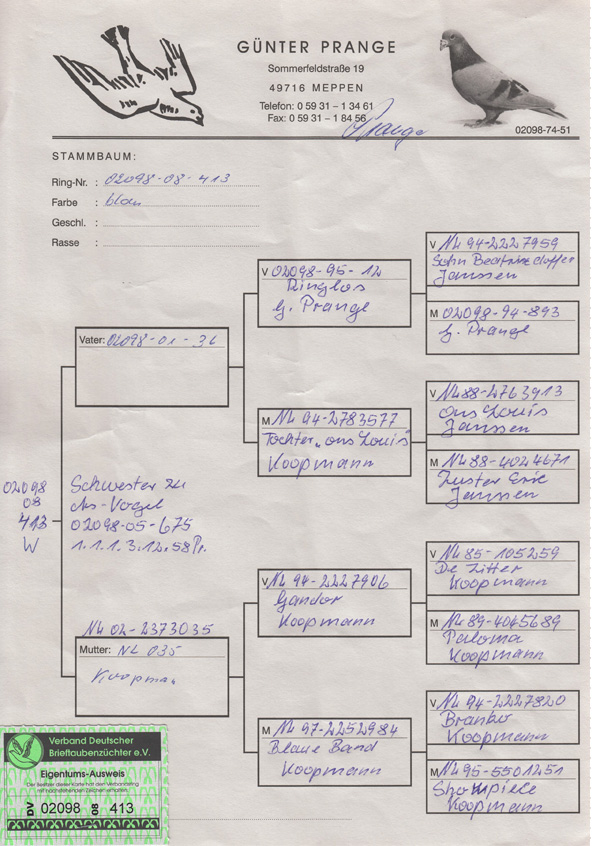 GÜNTER PRANGE
Sommerfeldstraße 19
49716 MEPPEN
Telefon: 0 59 31 – 1 34 61
Fax: 0 59 31 – 1 84 56
Prange
02098-74-51
STAMMBAUM:
Ring-Nr. : 02098-08-413
Farbe : blau
Geschl. :
Rasse :
V NL 94-2227959
Sohn Beatrixdoffer
Janssen
V 02098-95-12
Ringlos
G. Prange
M 02098-94-893
G. Prange
Vater: 02098-01-36
V NL 88-2763913
Ons Louis
Janssen
M NL 94-2783577
Tochter "ons Louis"
Koopmann
M NL 88-4024671
Zuster Eric
Janssen
02098
08
413
W
Schwester zu
As-Vogel
02098-05-675
1.1.1.3.12.58 Pr.
V NL 85-105259
De Zitter
Koopmann
V NL 94-2227906
Gandor
Koopmann
M NL 89-4045689
Paloma
Koopmann
NL 02-2373035
Mutter: NL 035
Koopman
V NL 94-2227820
Branko
Koopmann
M NL 97-2252984
Blaue Band
Koopmann
M NL 95-5501251
Showpiece
Koopmann
Verband Deutscher
Brieftaubenzüchter e.V.
Eigentums-Ausweis
Der Besitzer dieser Karte hat den Verbandsring
mit nachstehenden Zeichen erhalten.
DV 02098 08 413